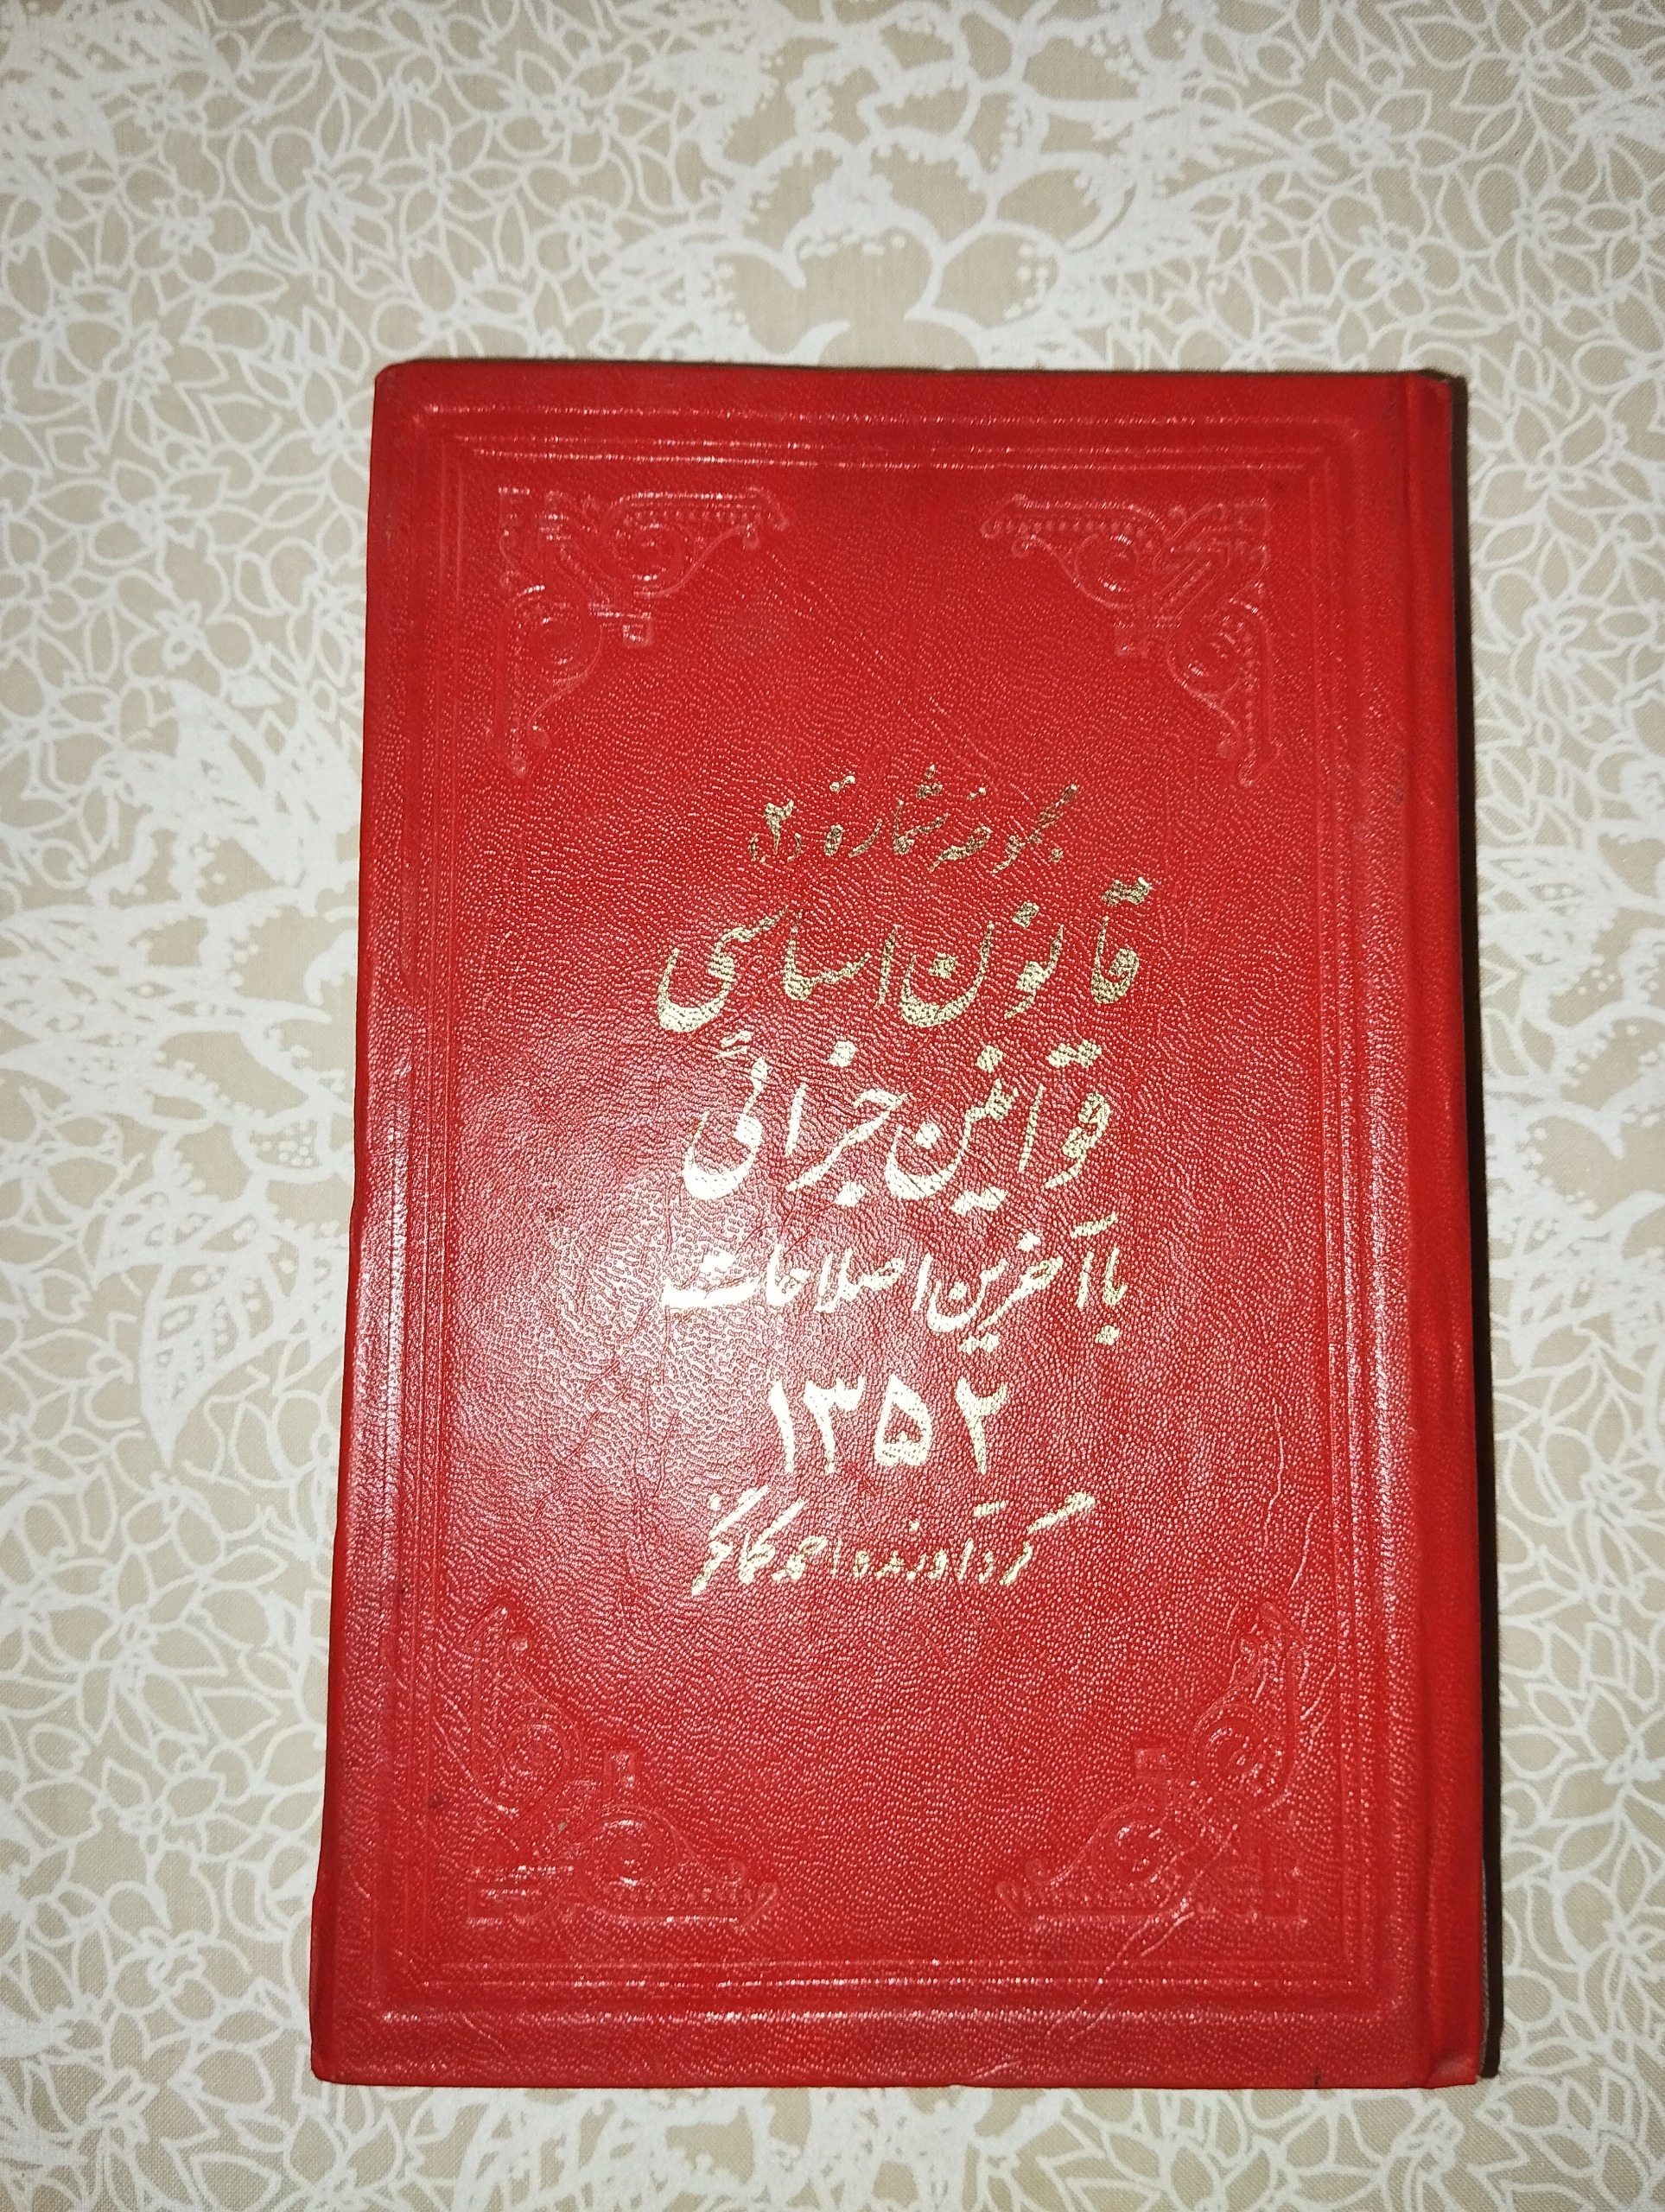 مجموعه شماره «۲»
قانون اساسی
قوانین جزائی
با آخرین اصلاحات
۱۳۵۲
گردآورنده احمد کمانگر